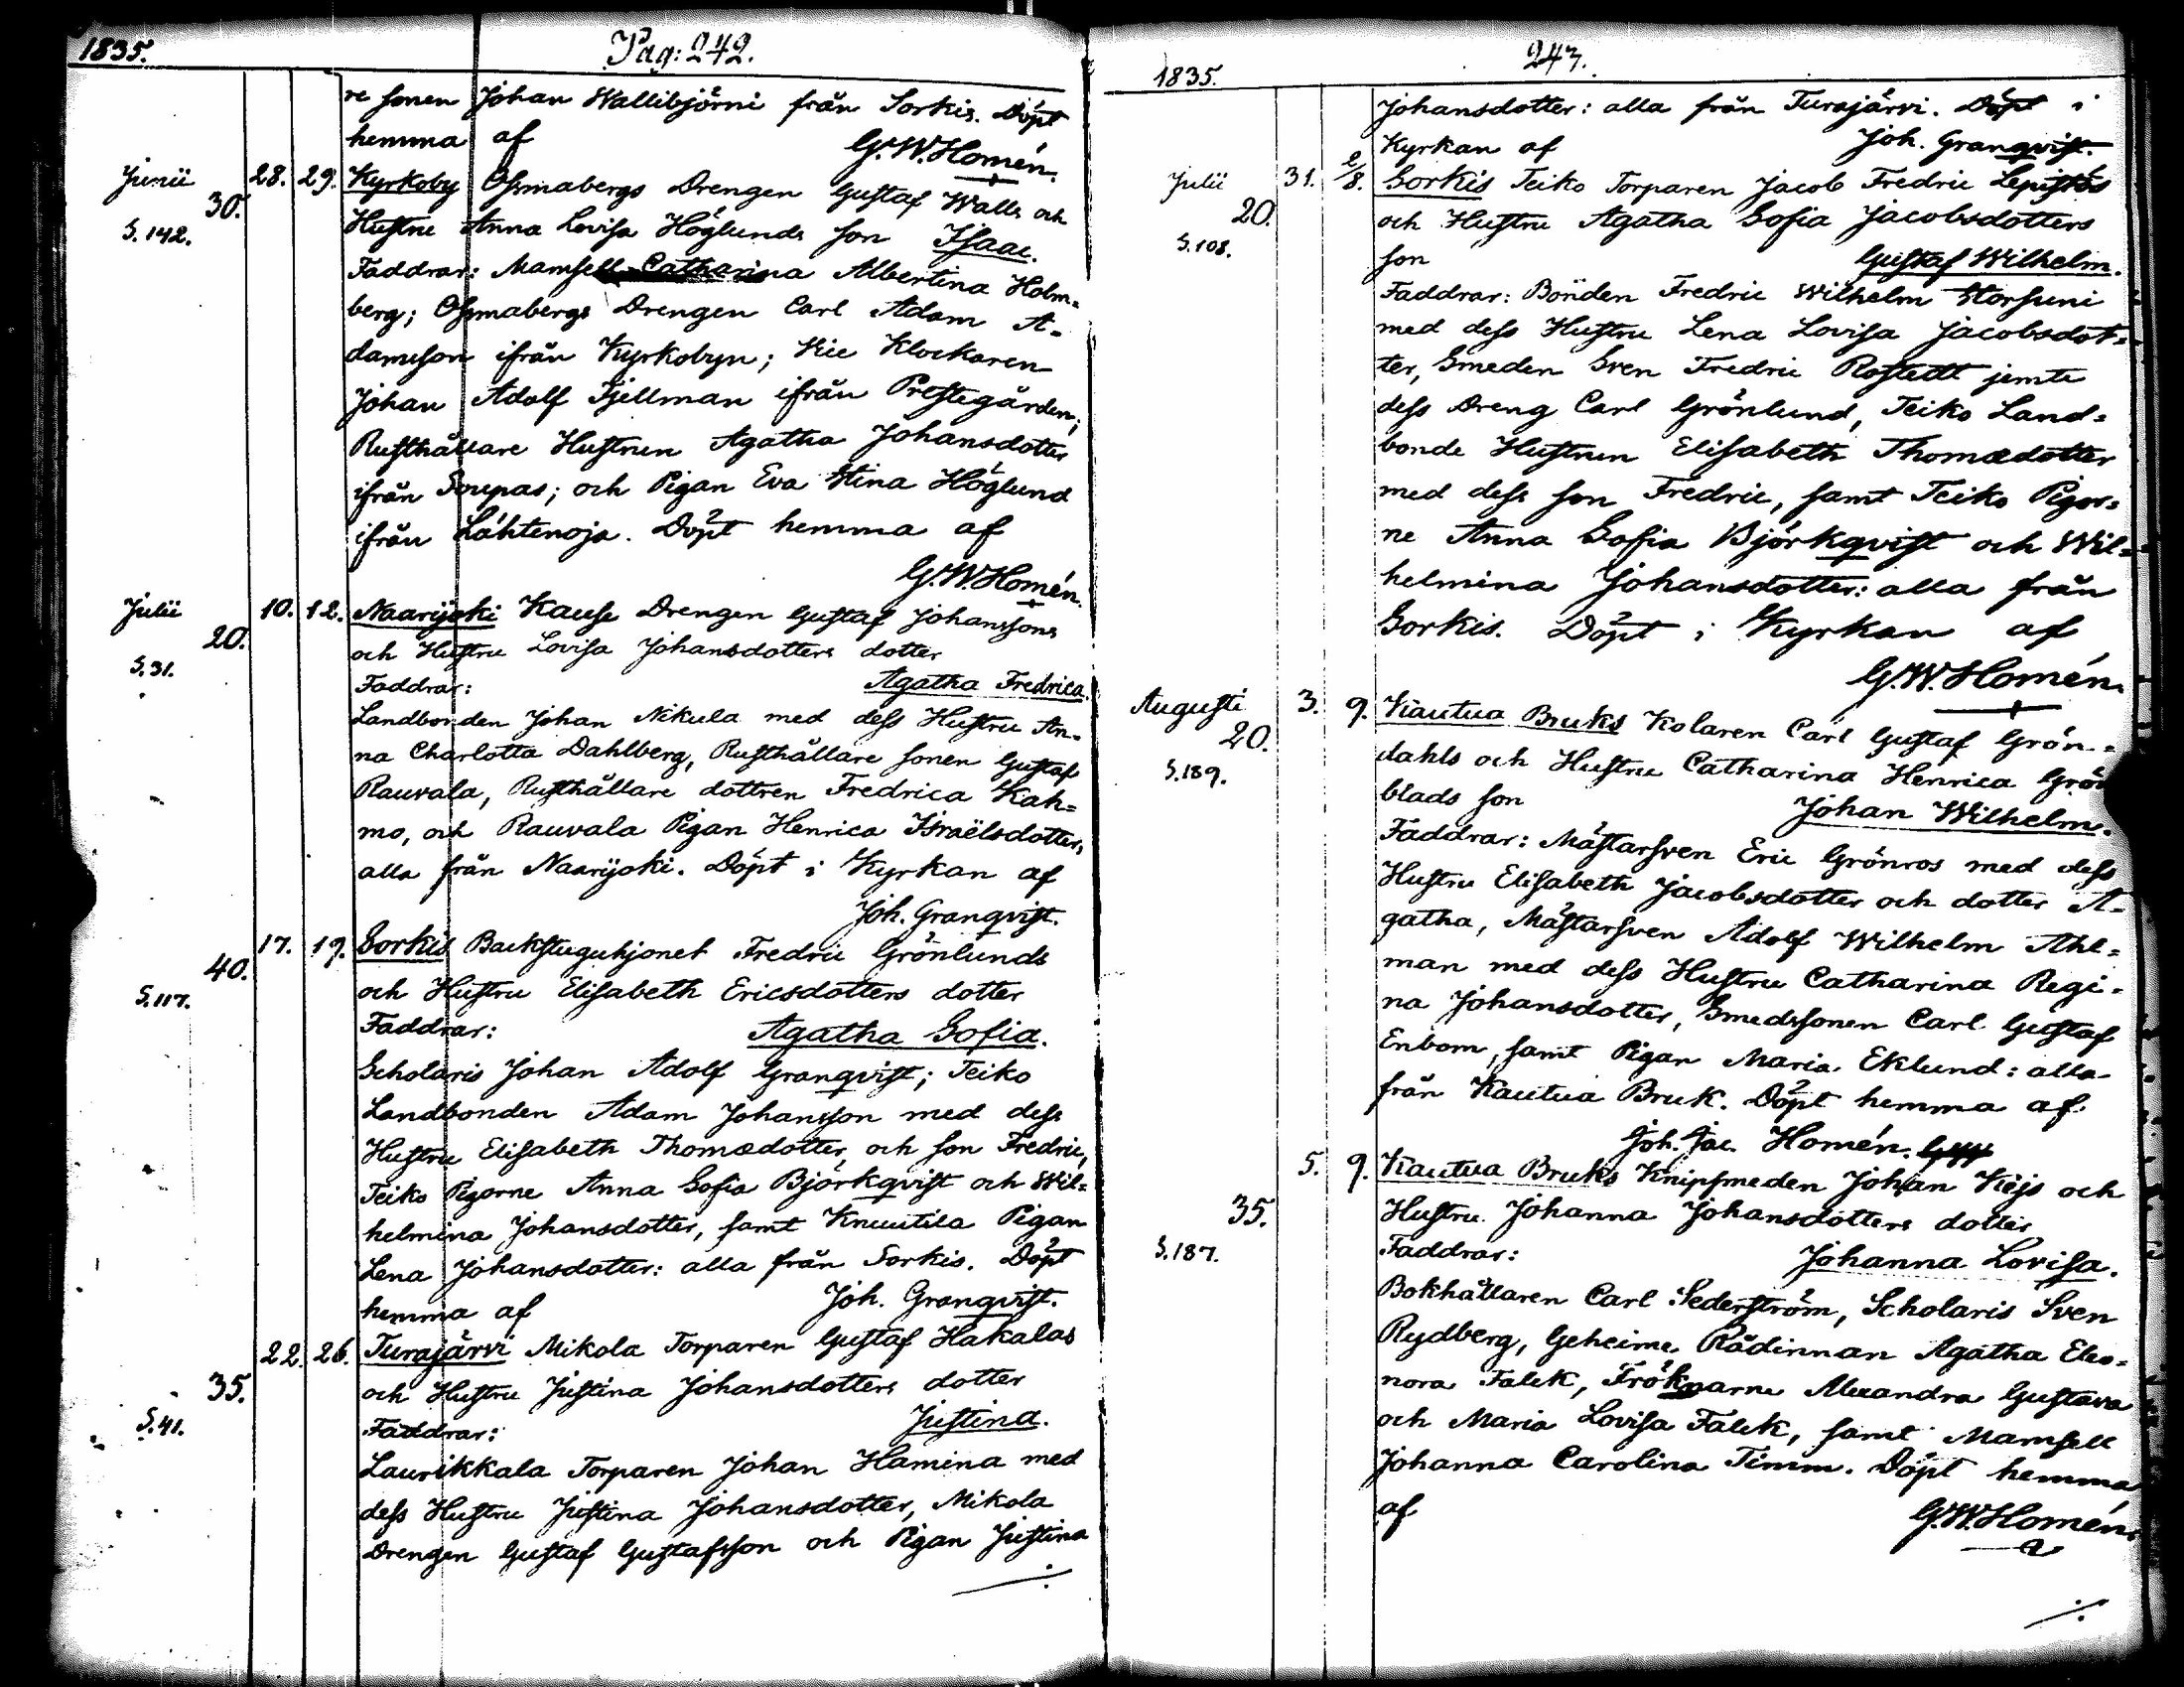 1835. Pag: 242.
re sonen Johan Wallibjörni från Sorkis. Döpt
hemma af G. W. Homén.
Junii 28. 29. Kyrkoby Ohrmabergs Drengen Gustaf Walls och
30.
S. 142. Hustru Anna Lovisa Höglunds son Isaac.
Faddrar: Mamsell Catharina Albertina Holm=
berg; Ohrmabergs Drengen Carl Adam A=
damsson ifrån Kyrkobyn; Vice Klockaren
Johan Adolf Tjellman ifrån Prestegården;
Rusthållare Hustrun Agatha Johansdotter
ifrån Soupas; och Pigan Eva Stina Höglund
ifrån Lähtenoja. Döpt hemma af
G. W. Homén.
Julii 10. 12. Naarijoki Kause Drengen Gustaf Johanssons
20.
S. 31. och Hustru Lovisa Johansdotters dotter
Faddrar: Agatha Fredrica.
Landbonden Johan Nikula med dess Hustru An=
na Charlotta Dahlberg, Rusthållare sonen Gustaf
Rauvala, Rusthållare dottren Fredrica Kah=
mo, och Rauvala Pigan Henrica Israëlsdotter,
alla från Naarijoki. Döpt i Kyrkan af
Joh. Granqvist.
17. 19. Sorkis Backstuguhjonet Fredric Grönlunds
40.
S. 117. och Hustru Elisabeth Ericsdotters dotter
Faddrar: Agatha Sofia.
Scholaris Johan Adolf Granqvist; Teiko
Landbonden Adam Johansson med dess
Hustru Elisabeth Thomædotter, och son Fredric,
Teiko Pigorne Anna Sofia Björkqvist och Wil=
helmina Johansdotter, samt Knuutila Pigan
Lena Johansdotter: alla från Sorkis. Döpt
hemma af Joh. Granqvist.
22. 26. Turajärvi Mikola Torparen Gustaf Hakalas
35.
S. 41. och Hustru Justina Johansdotters dotter
Faddrar: Justina.
Laurikkala Torparen Johan Hamina med
dess Hustru Justina Johansdotter, Mikola
Drengen Gustaf Gustafsson och Pigan Justina
1835. 243.
Johansdotter: alla från Turajärvi. Döpt i
Kyrkan af Joh. Granqvist.
Julii 31. 2/8. Sorkis Teiko Torparen Jacob Fredric Lepistös
20.
S. 108. och Hustru Agatha Sofia Jacobsdotters
son Gustaf Wilhelm.
Faddrar: Bonden Fredric Wilhelm Storsuni
med dess Hustru Lena Lovisa Jacobsdot=
ter, Smeden Sven Fredric Rostedt jemte
dess Dreng Carl Grönlund, Teiko Land=
bonde Hustrun Elisabeth Thomædotter
med dess son Fredric, samt Teiko Pigor=
ne Anna Sofia Björkqvist och Wil=
helmina Johansdotter: alla från
Sorkis. Döpt i Kyrkan af
G. W. Homén.
Augusti 3. 9. Kautua Bruks Kolaren Carl Gustaf Grön=
20.
S. 189. dahls och Hustru Catharina Henrica Grön
blads son Johan Wilhelm.
Faddrar: Mästarsven Eric Grönros med dess
Hustru Elisabeth Jacobsdotter och dotter A=
gatha, Mästarsven Adolf Wilhelm Ahl=
man med dess Hustru Catharina Regi=
na Johansdotter, Smedssonen Carl Gustaf
Enbom, samt Pigan Maria Eklund: alla
från Kautua Bruk. Döpt hemma af
Joh. Jac. Homén.
5. 9. Kautua Bruks Knipsmeden Johan Kejs och
35.
S. 187. Hustru Johanna Johansdotters dotter
Faddrar: Johanna Lovisa.
Bokhållaren Carl Sederström, Scholaris Sven
Rydberg, Geheime Rådinnan Agatha Eleo=
nora Falck, Fröknarne Alexandra Gustava
och Maria Lovisa Falck, samt Mamsell
Johanna Carolina Timm. Döpt hemma
af G. W. Homén.